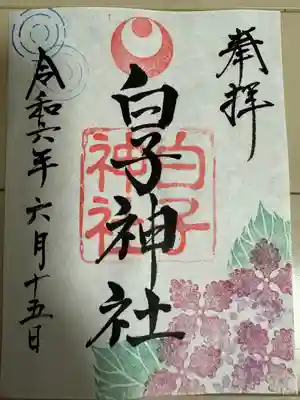 奉拝
白子神社
白子神社
令和六年六月十五日